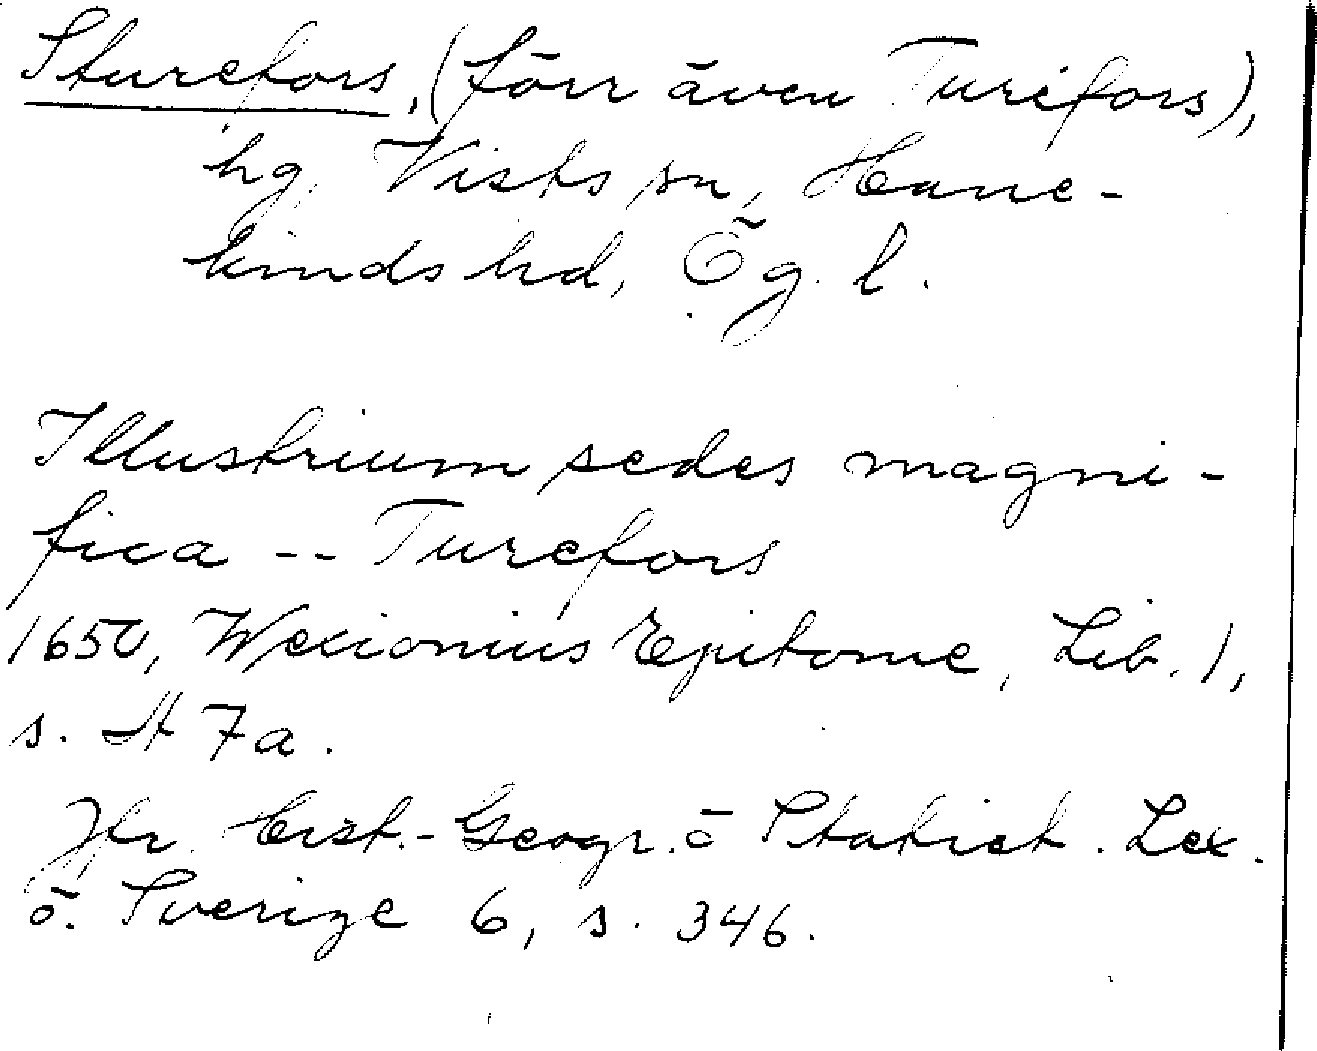 Sturefors, (förr även Turifors),
hg, Vists sn, Hane-
kinds hd, Ög. l.
Illustrium sedes magni-
fica -- Turefors
1650, Wexionius Epitome, Lib. 1,
s. A 7a.
Jfr. Hist.-Geogr. o Statist. Lex.
ö. Sverige 6, s. 346.